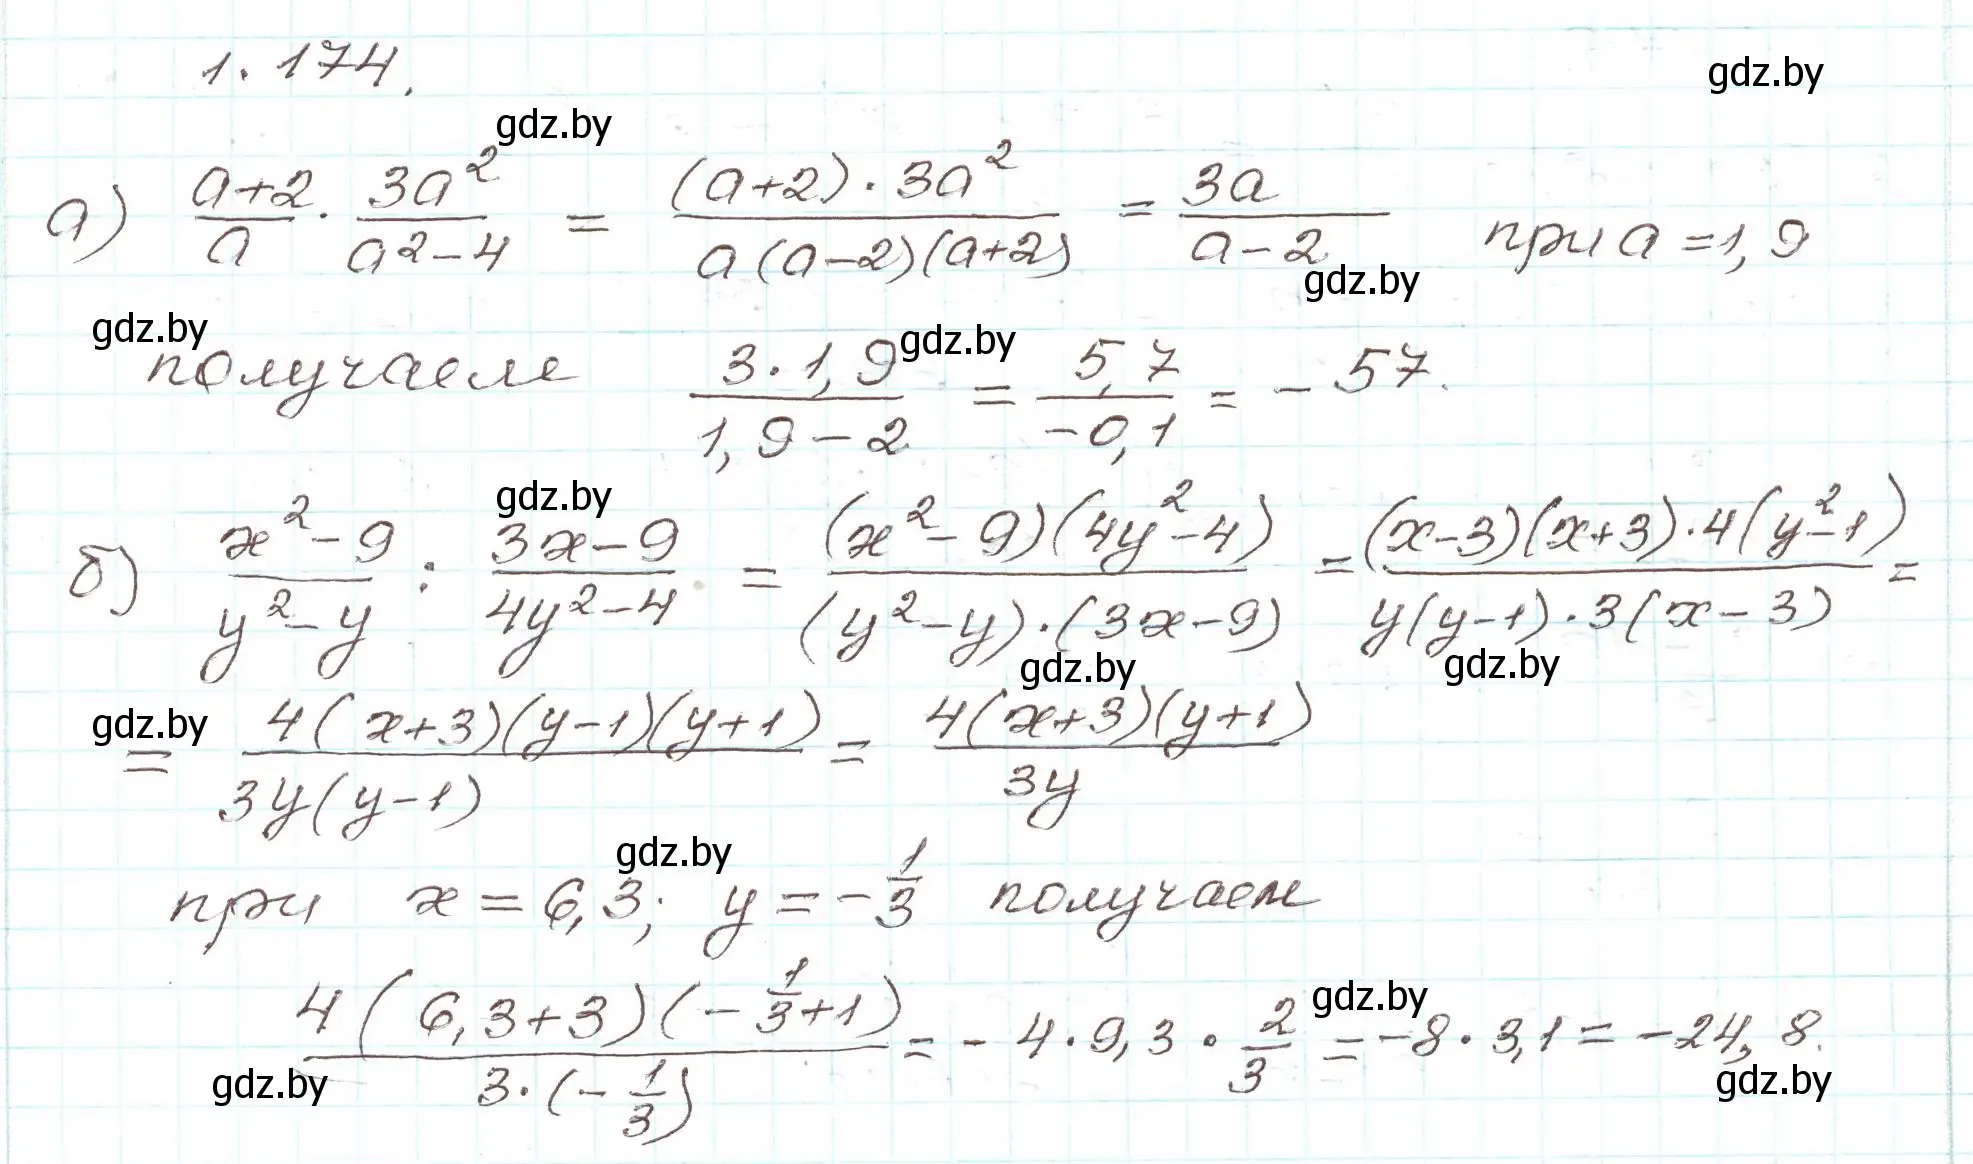 1.174.
gdz.by
gdz.by
а) (a+2)/a · 3a²/(a²-4) = ((a+2)·3a²)/(a(a-2)(a+2)) = 3a/(a-2) при a=1,9
gdz.by
gdz.by
gdz.by
получаем (3·1,9)/(1,9-2) = 5,7/(-0,1) = -57.
gdz.by
б) (x²-9)/(y²-y) : (3x-9)/(4y²-4) = ((x²-9)(4y²-4))/((y²-y)·(3x-9)) = ((x-3)(x+3)·4(y²-1))/(y(y-1)·3(x-3)) =
gdz.by
gdz.by
gdz.by
= (4(x+3)(y-1)(y+1))/(3y(y-1)) = (4(x+3)(y+1))/(3y)
gdz.by
при x=6,3; y=-1/3 получаем
gdz.by
(4(6,3+3)(-1/3+1))/(3·(-1/3)) = -4·9,3·2/3 = -8·3,1 = -24,8.
gdz.by
gdz.by